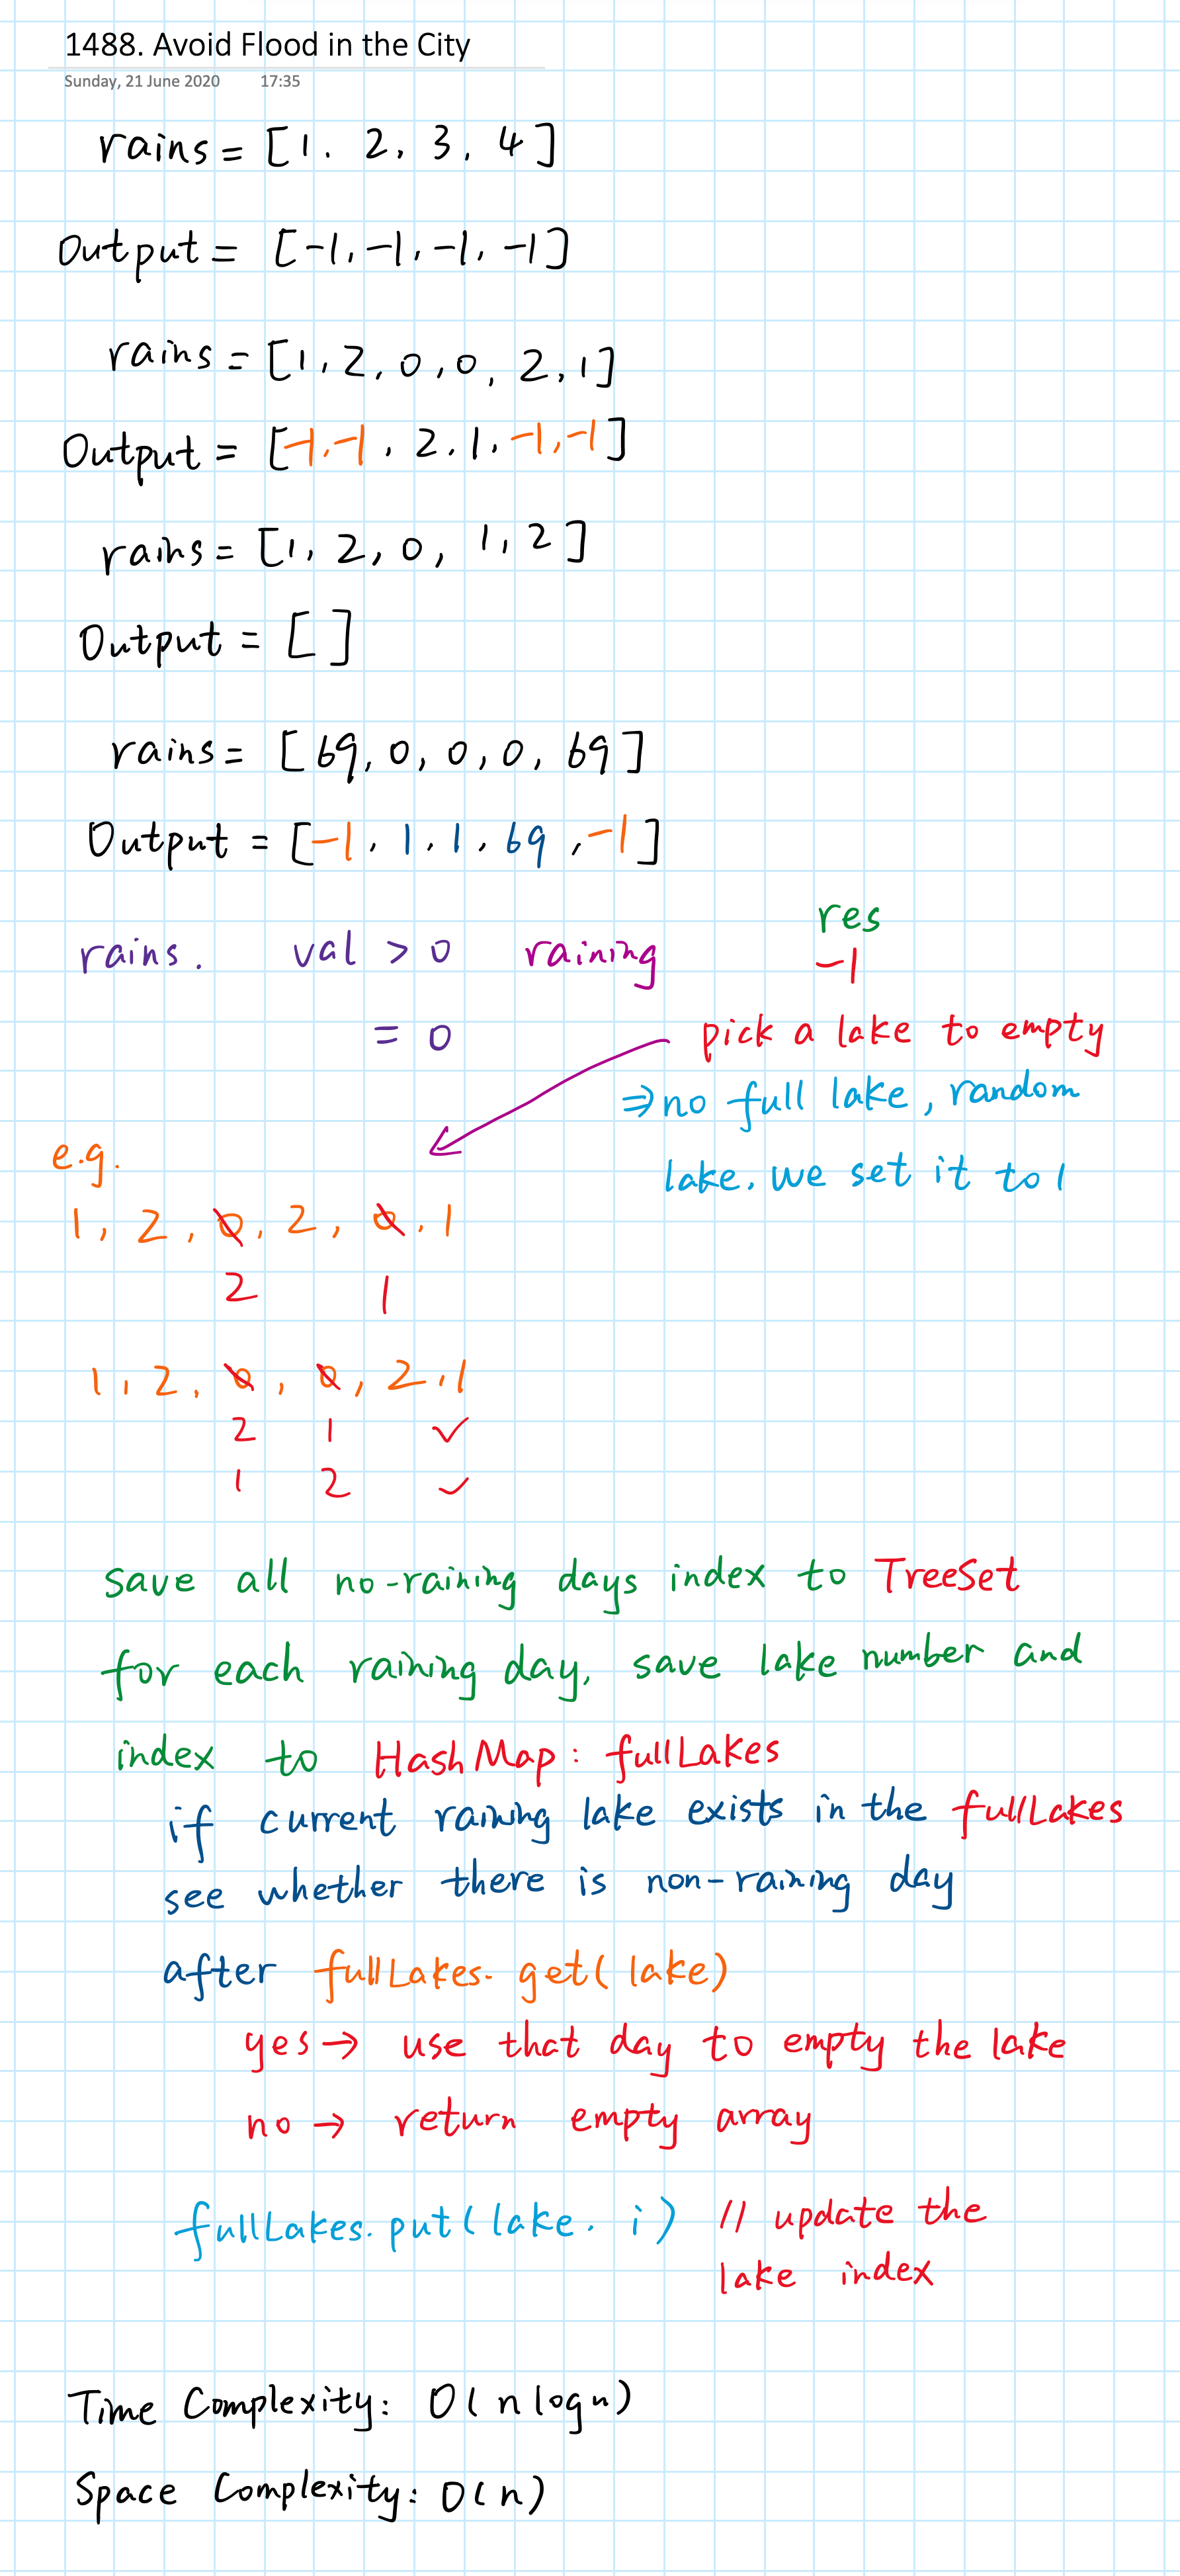 1488. Avoid Flood in the City
Sunday, 21 June 2020 17:35
rains = [1, 2, 3, 4]
Output = [-1, -1, -1, -1]
rains = [1, 2, 0, 0, 2, 1]
Output = [-1, -1, 2, 1, -1, -1]
rains = [1, 2, 0, 1, 2]
Output = []
rains = [69, 0, 0, 0, 69]
Output = [-1, 1, 1, 69, -1]
res
rains. val > 0 raining -1
= 0 pick a lake to empty
⇒ no full lake, random
lake. we set it to 1
e.g.
1, 2, 0, 2, 0, 1
2 1
1, 2, 0, 0, 2, 1
2 1 ✓
1 2 ✓
save all no-raining days index to TreeSet
for each raining day, save lake number and
index to HashMap: fullLakes
if current raining lake exists in the fullLakes
see whether there is non-raining day
after fullLakes.get(lake)
yes → use that day to empty the lake
no → return empty array
fullLakes.put(lake, i) // update the
lake index
Time Complexity: O(nlogn)
Space Complexity: O(n)